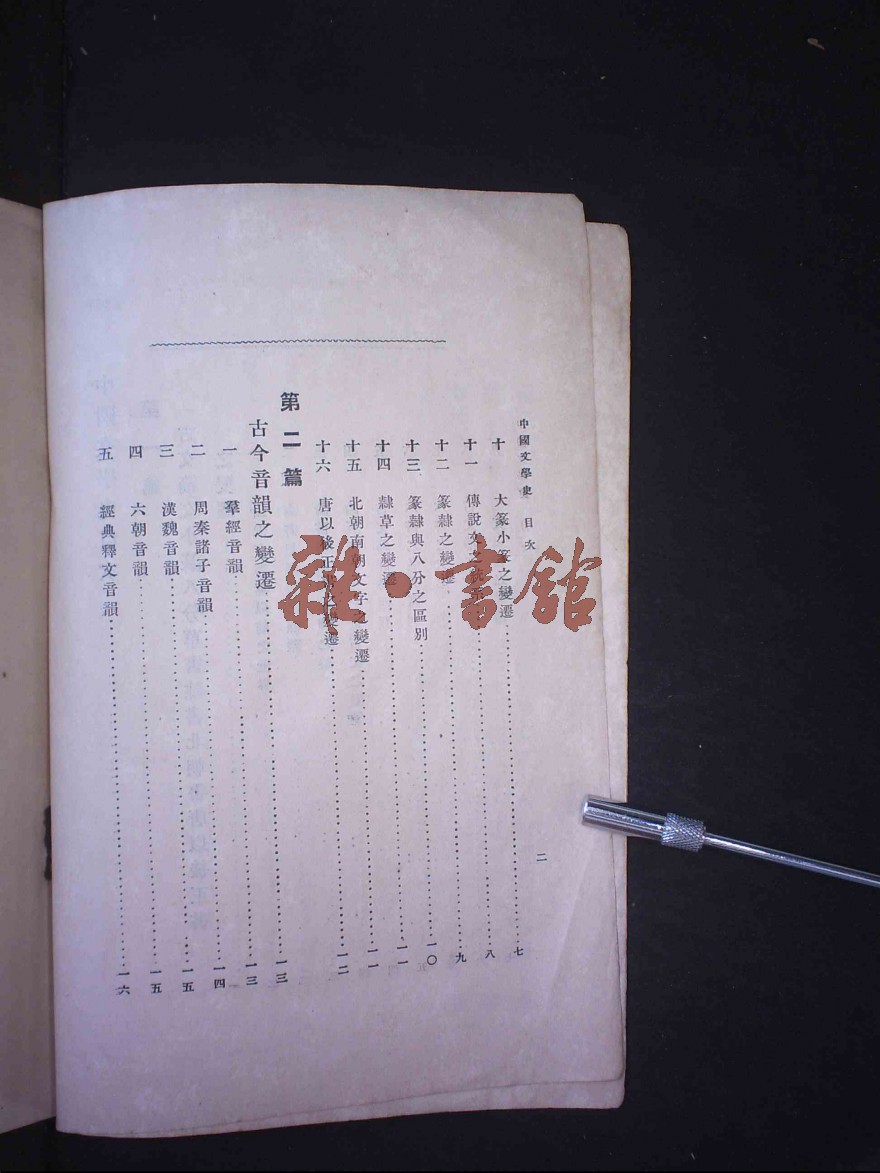 中國文學史 目次 二
十 大篆小篆之變遷……七
十一 傳說文……八
十二 篆隸之變遷……九
十三 篆隸與八分之區別……一〇
十四 隸草之變遷……一一
十五 北朝南朝文字之變遷……一一
十六 唐以後正書之變遷……一二
第二篇
古今音韻之變遷……一三
一 羣經音韻……一三
二 周秦諸子音韻……一四
三 漢魏音韻……一五
四 六朝音韻……一五
五 經典釋文音韻……一六
雜·書館